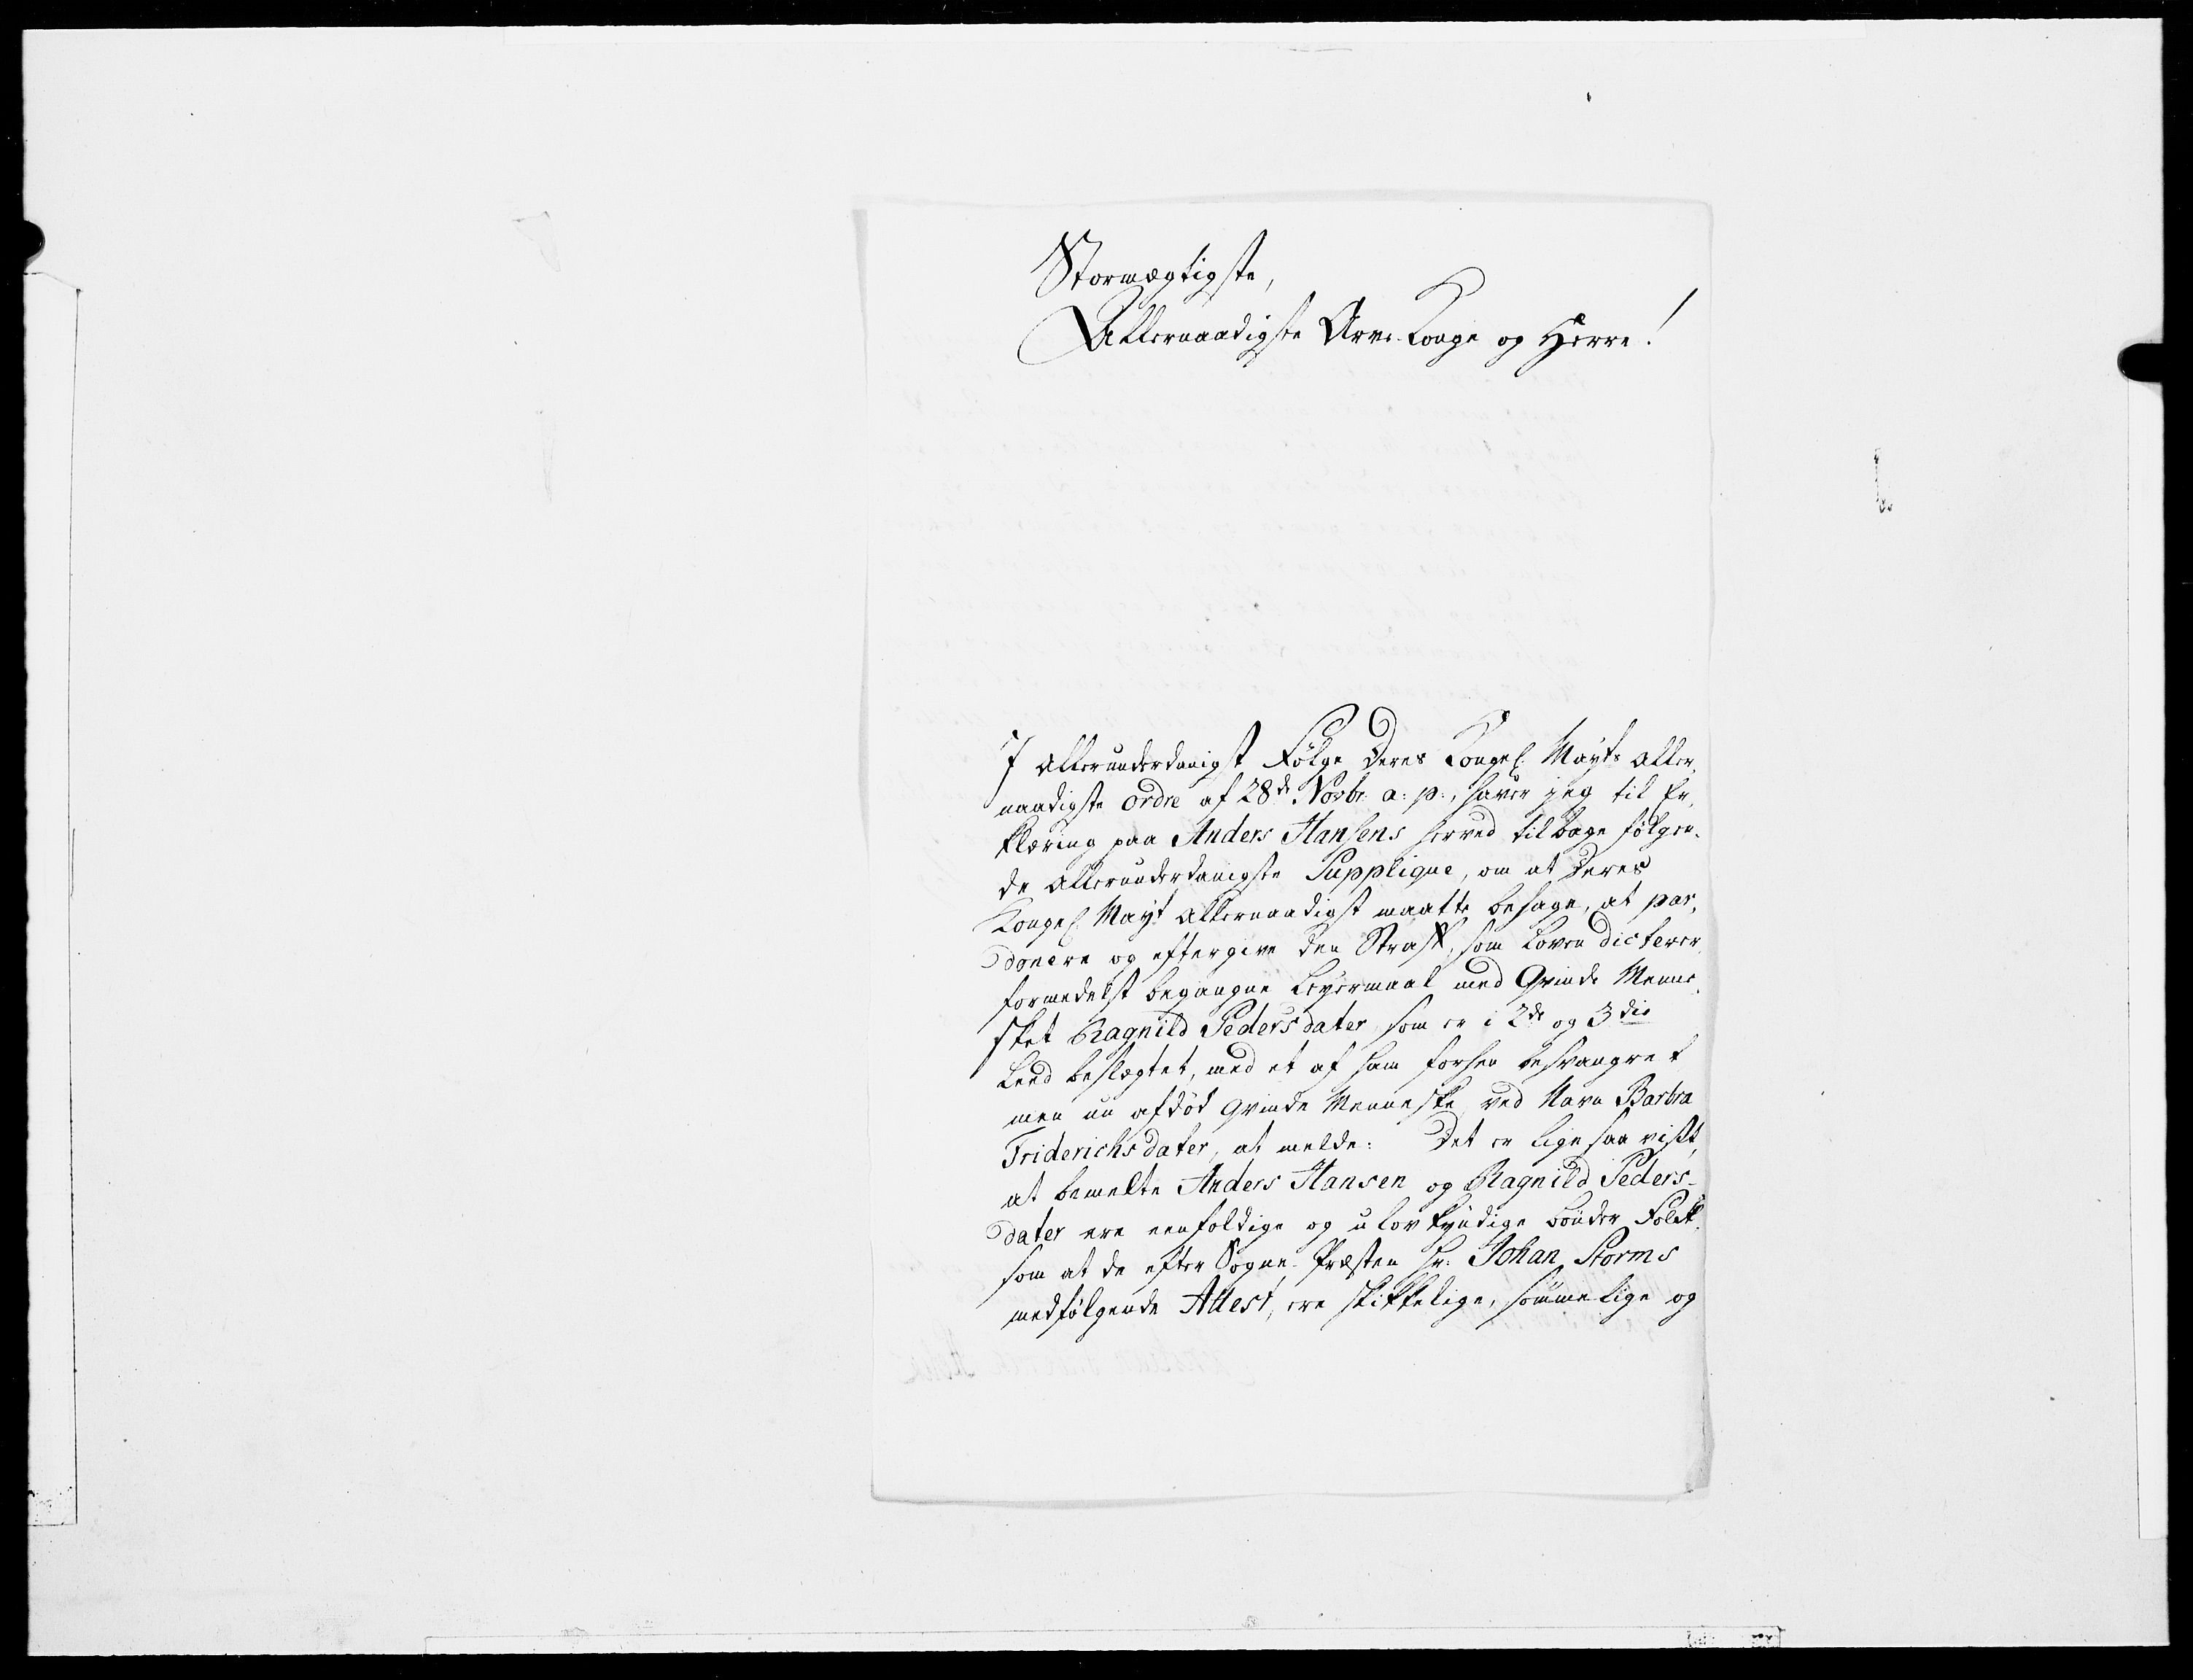 Stormægtigste,
Allernaadigste Arve-Konge og Herre!
I allerunderdanigst Følge Deres Kongel: Mayts aller
naadigste ordre af 28de Novbr. a: p:, haver jeg til Er,
klæring paa Anders Hansens herved tilbage følgen,
de allerunderdanigste Supplique, om at Deres
Kongel: Mayt allernaadigst maatte behage, at par,
donere og eftergive den Straff, som Loven dicterer
formedelst begangne Leyermaal med Qvinde Menne,
sket Ragnild Pedersdater, som er i 2de og 3die
Leed beslægtet, med et af ham forhen besvangret
men nu afdød Qvinde Menneske, ved Navn Barbra
Friderichsdater, at melde: Det er lige saa vist,
at bemelte Anders Hansen og Ragnild Peders-
dater ere eenfoldige og ulovkyndige bønder Folk,
som at de efter Sogne-Præsten Hr: Johan Storms
medfølgende Attest, ere skikkelige, sømmelige og